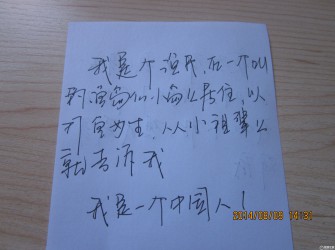 我是个渔民,在一个叫
钓鱼岛的小岛上居住,以
打鱼为生,从小祖辈就
就告诉我
我是一个中国人!
2014/09/09 14:31